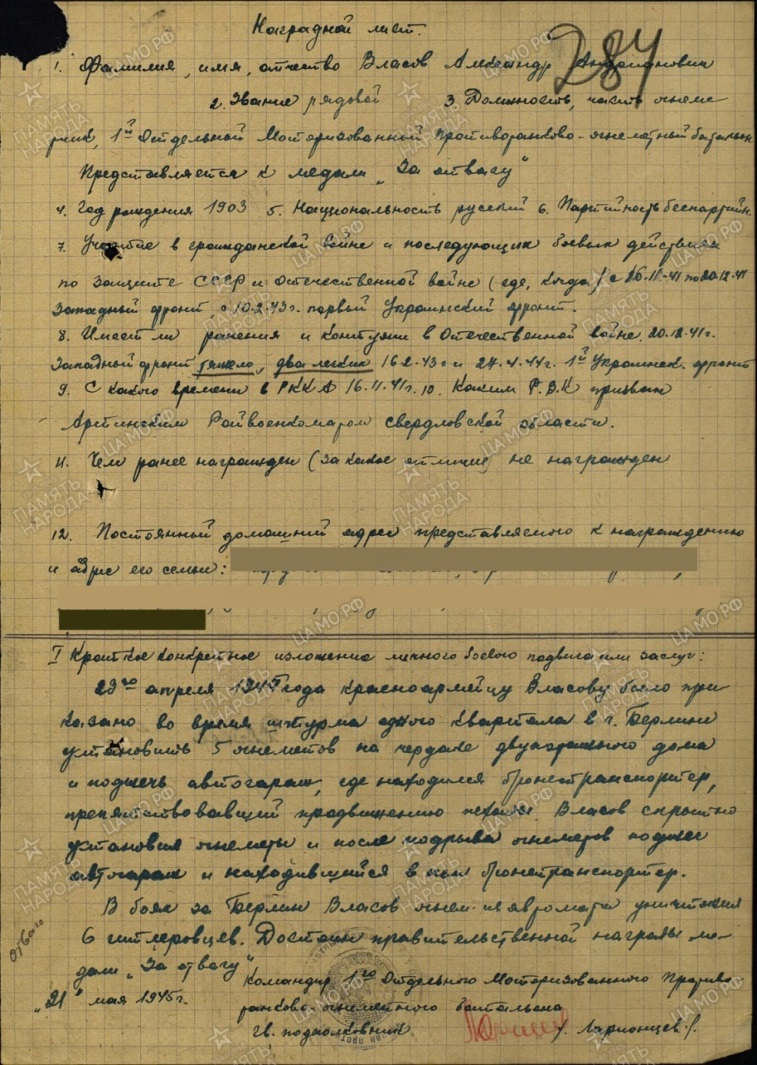 Наградной лист.
284
1. Фамилия, имя, отчество Власов Александр Андрианович
2. Звание рядовой 3. Должность, часть огнеме
тчик, 1й Отдельной Моторизованный противотанково-огнеметный батальон
Представляется к медали „За отвагу"
4. Год рождения 1903 5. Национальность русский 6. Партийность беспартийн.
7. Участие в гражданской войне и последующих боевых действиях
по защите СССР и Отечественной войне (где, когда) с 26-11-41 по 20-12-41
Западный фронт, с 10-2-43г. первый Украинский фронт.
8. Имеет ли ранения и контузии в Отечественной войне. 20.12.41г.
Западный фронт тяжело, два легких 16.2.43г и 24.4.44г. 1й Украинск. фронт
9. С какого времени в РККА 16.11.41г. 10. Каким Р.В.К призван
Артинским Райвоенкоматом Свердловской области.
11. Чем ранее награжден (за какое отличие) не награжден
12. Постоянный домашний адрес представляемого к награждению
и адрес его семьи:
I Краткое конкретное изложение личного боевого подвига или заслуг:
29го апреля 1945 года красноармейцу Власову было при
казано во время штурма одного квартала в г. Берлини
установить 5 огнеметов на чердаке двухэтажного дома
и поджечь автогараж, где находился бронетранспортер,
препятствовавший продвижению пехоты. Власов скрытно
установил огнеметы и после подрыва огнеметов поджег
автогараж и находившийся в нем бронетранспортер.
В боях за Берлин Власов огнем из автомата уничтожил
6 гитлеровцев. Достоин правительственной награды ме-
дали „За отвагу"
отвага
Командир 1го Отдельного Моторизованного Противо
„21" мая 1945г. танково-огнеметного батальона
гв. подполковник /Ларионцев/.
ПАМЯТЬ НАРОДА
ЦАМО.РФ